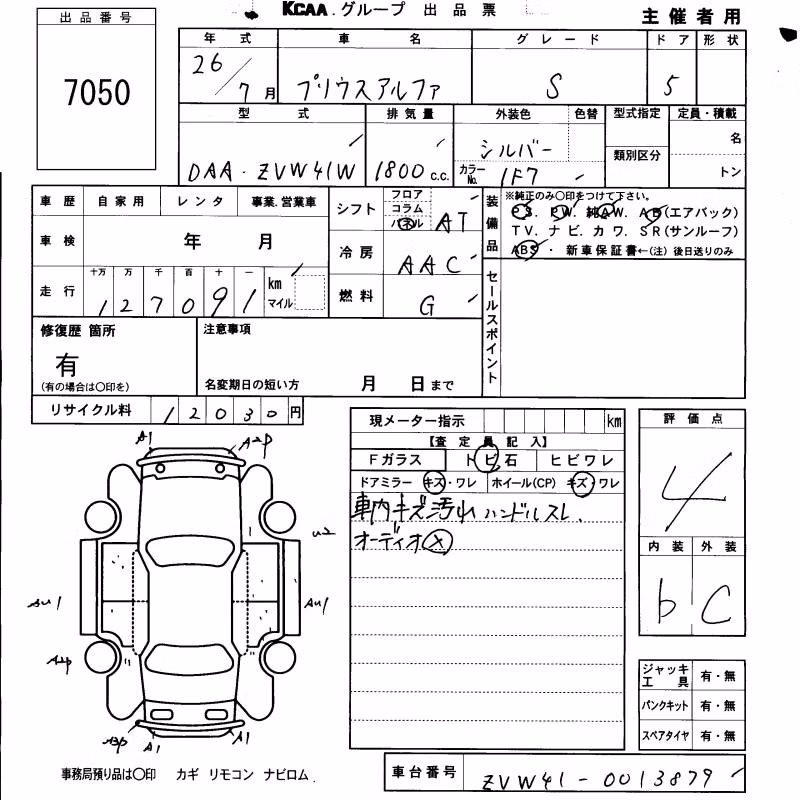 KCAA グループ 出品票
主催者用
出品番号
7050
年式 車名 グレード ドア 形状
26/7月 プリウスアルファ S 5
型式 排気量 外装色 色替 型式指定 定員・積載
DAA-ZVW41W 1800 c.c. シルバー 類別区分 名
カラーNo. 1F7 トン
車歴 自家用 レンタ 事業.営業車
車検 年 月
走行 十万 万 千 百 十 一 km マイル
127091
シフト フロア コラム パネル AT
冷房 AAC
燃料 G
装備品
※純正のみ○印をつけて下さい。
PS. PW. 純AW. AB(エアバック)
TV. ナビ. カワ. SR(サンルーフ)
ABS ・ 新車保証書←(注) 後日送りのみ
セールスポイント
修復歴 箇所
有
(有の場合は○印を)
注意事項
名変期日の短い方 月 日まで
リサイクル料 12030円
現メーター指示 km
【査定員記入】
Fガラス トビ石 ヒビワレ
ドアミラー キズ・ワレ ホイール(CP) キズ・ワレ
車内キズ汚れ ハンドルスレ.
オーディオ×
評価点
4
内装 外装
b C
A1 A2P
U2
AU1 AU1
A2P
A3P A1 A1
ジャッキ工具 有・無
パンクキット 有・無
スペアタイヤ 有・無
事務局預り品は○印 カギ リモコン ナビロム.
車台番号 ZVW41-0013879